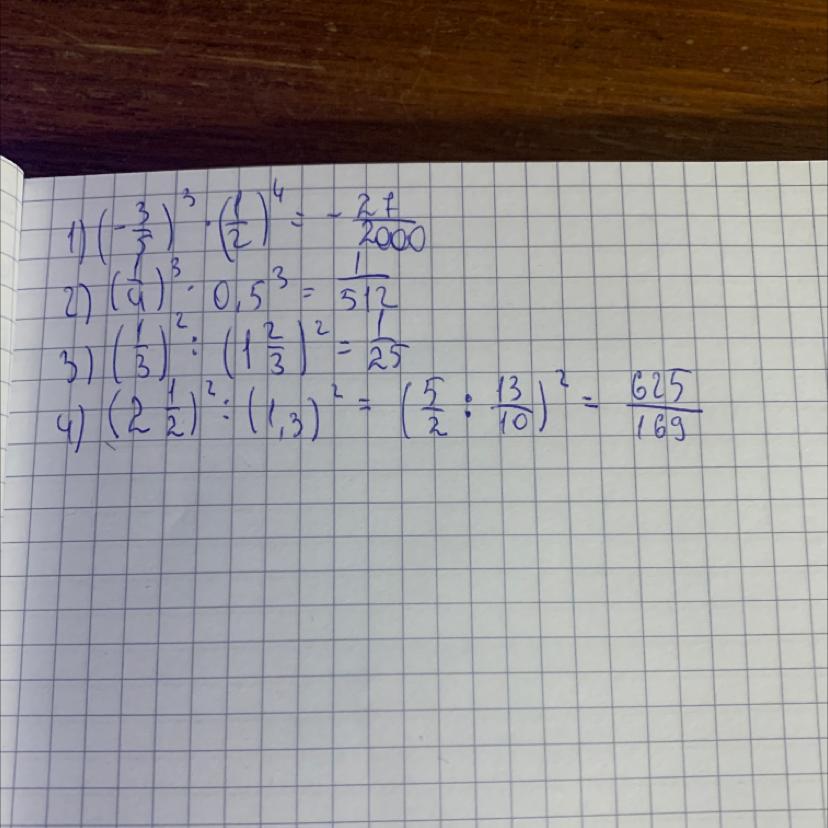 1) (-3/5)³ · (1/2)⁴ = -27/2000
2) (1/4)³ · 0,5³ = 1/512
3) (1/3)² : (1 2/3)² = 1/25
4) (2 1/2)² : (1,3)² = (5/2 : 13/10)² = 625/169